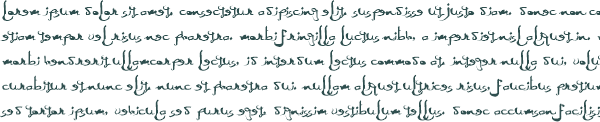 lorem ipsum dolor sit amet, consectetur adipiscing elit. suspendisse ut justo diam. donec non co
etiam tempor vel risus nec pharetra. morbi fringilla luctus nibh, a imperdiet nisl aliquet in.
morbi hendrerit ullamcorper lectus, id interdum lectus commodo at. integer nulla dui,
curabitur et nunc elit. nunc et pharetra dui. nullam aliquet ultrices risus, faucibus pretium
sed tortor ipsum, vehicula sed purus eget, dignissim vestibulum tellus. donec accumsan facilisi